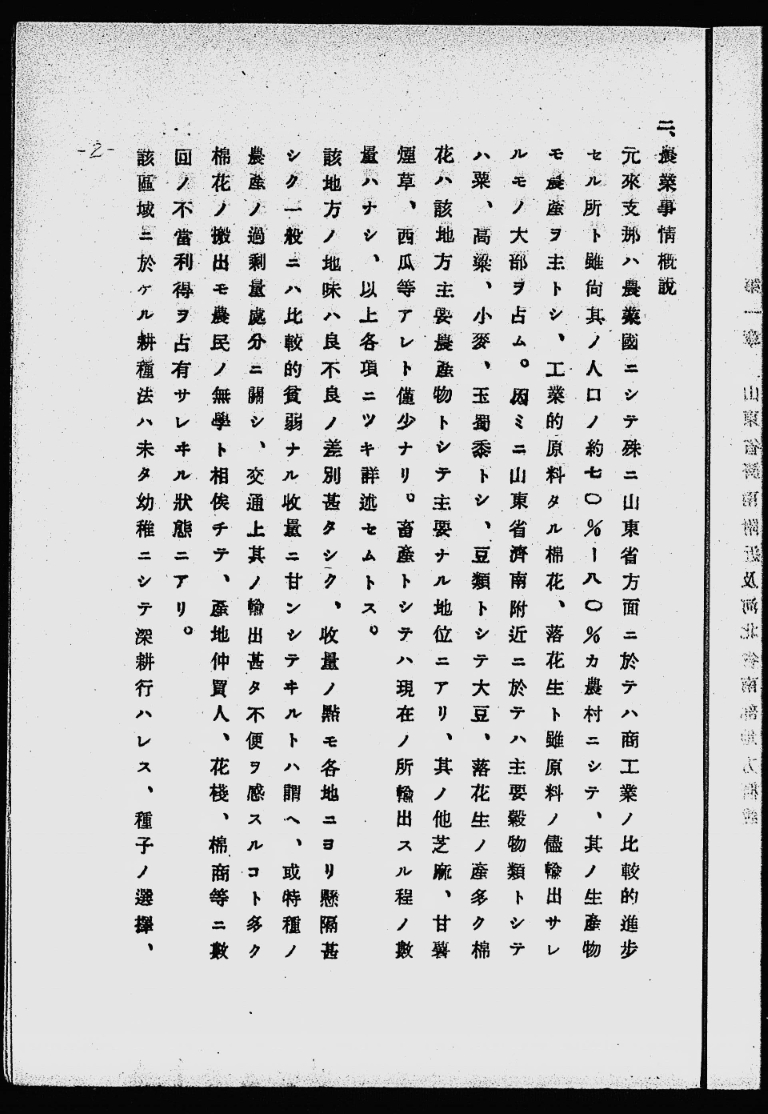 二、農業事情概說
元來支那ハ農業國ニシテ殊ニ山東省方面ニ於テハ商工業ノ比較的進步
セル所ト雖尙其ノ人口ノ約七〇％ー八〇％カ農村ニシテ、其ノ生產物
モ農產ヲ主トシ、工業的原料タル棉花、落花生ト雖原料ノ儘輸出サレ
ルモノ大部ヲ占ム。因ミニ山東省濟南附近ニ於テハ主要穀物類トシテ
ハ粟、高粱、小麥、玉蜀黍トシ、豆類トシテ大豆、落花生ノ產多ク棉
花ハ該地方主要農產物トシテ主要ナル地位ニアリ、其ノ他芝麻、甘薯
煙草、西瓜等アレト僅少ナリ。畜產トシテハ現在ノ所輸出スル程ノ數
量ハナシ、以上各項ニツキ詳述セムトス。
該地方ノ地味ハ良不良ノ差別甚タシク、收量ノ點モ各地ニヨリ懸隔甚
シク一般ニハ比較的貧弱ナル收量ニ甘ンシテヰルトハ謂へ、或特種ノ
農產ノ過剩量處分ニ關シ、交通上其ノ輸出甚タ不便ヲ感スルコト多ク
棉花ノ搬出モ農民ノ無學ト相俟チテ、產地仲買人、花棧、棉商等ニ數
回ノ不當利得ヲ占有サレヰル狀態ニアリ。
該區域ニ於ケル耕種法ハ未タ幼稚ニシテ深耕行ハレス、種子ノ選擇、
-2-
第一章 山東省濟南附近及河北省南部地方